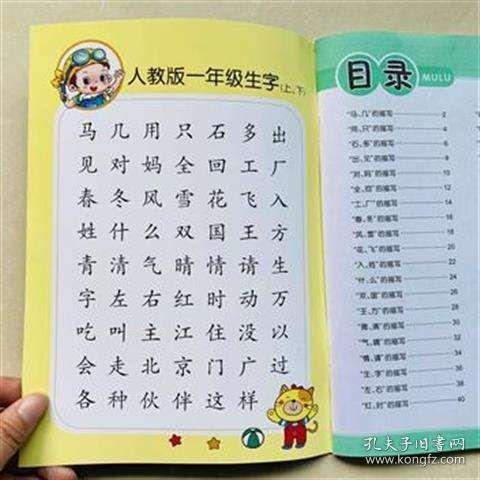 人教版一年级生字(上、下)
马 几 用 只 石 多 出
见 对 妈 全 回 工 厂
春 冬 风 雪 花 飞 入
姓 什 么 双 国 王 方
青 清 气 晴 情 请 生
字 左 右 红 时 动 万
吃 叫 主 江 住 没 以
会 走 北 京 门 广 过
各 种 伙 伴 这 样
目录
MULU
“马、几”的描写 2
“用、只”的描写 4
“石、多”的描写 6
“出、见”的描写 8
“对、妈”的描写 10
“全、回”的描写 12
“工、厂”的描写 14
“春、冬”的描写 16
“风、雪”的描写 18
“花、飞”的描写 20
“入、姓”的描写 22
“什、么”的描写 24
“双、国”的描写 26
“王、方”的描写 28
“青、清”的描写 30
“气、晴”的描写 32
“情、请”的描写 34
“生、字”的描写 36
“左、右”的描写 38
“红、时”的描写 40
孔夫子旧书网
www.kongfz.com